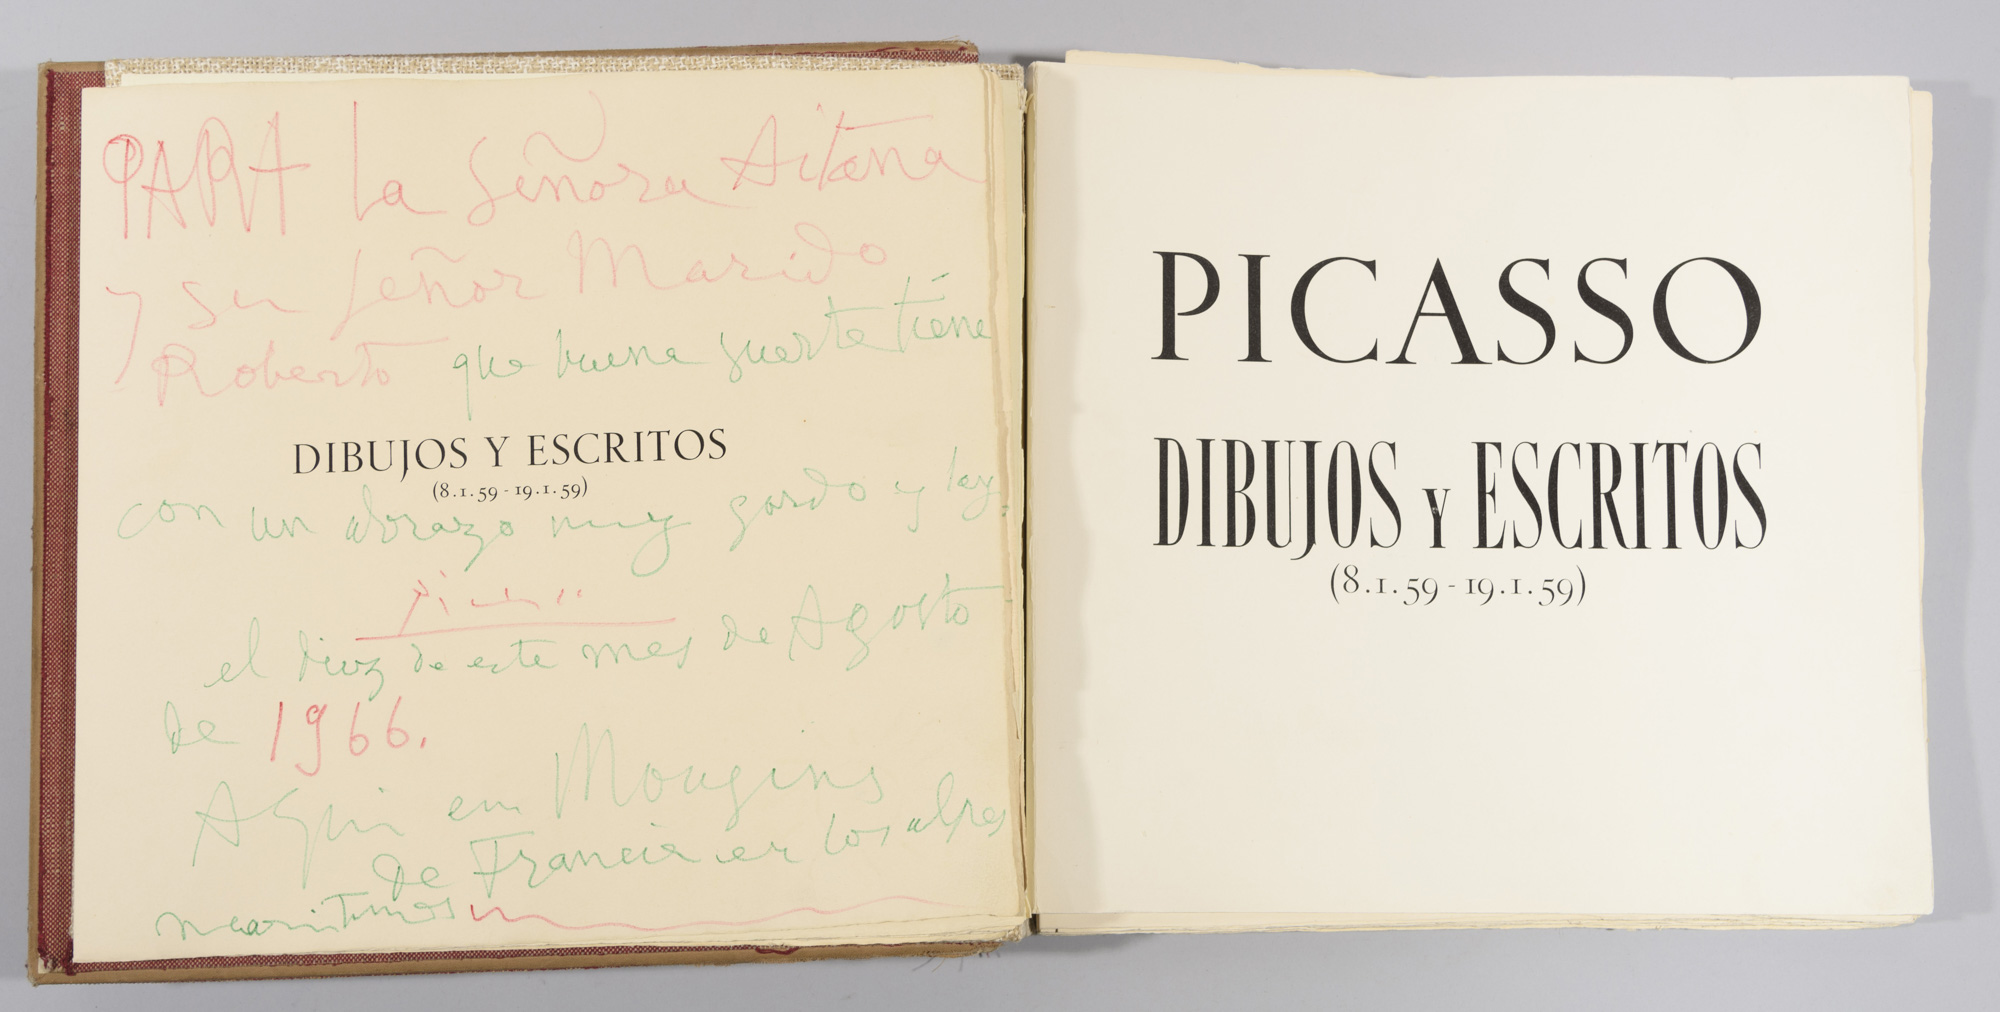 PARA la Señora Aitana
y su señor Marido
Roberto que buena suerte tiene
DIBUJOS Y ESCRITOS
(8.1.59 - 19.1.59)
con un abrazo muy gordo y
Picasso
el diez de este mes de Agosto
de 1966.
Aqui en Mougins
de Francia en los alpes
maritimos
PICASSO
DIBUJOS Y ESCRITOS
(8.1.59 - 19.1.59)